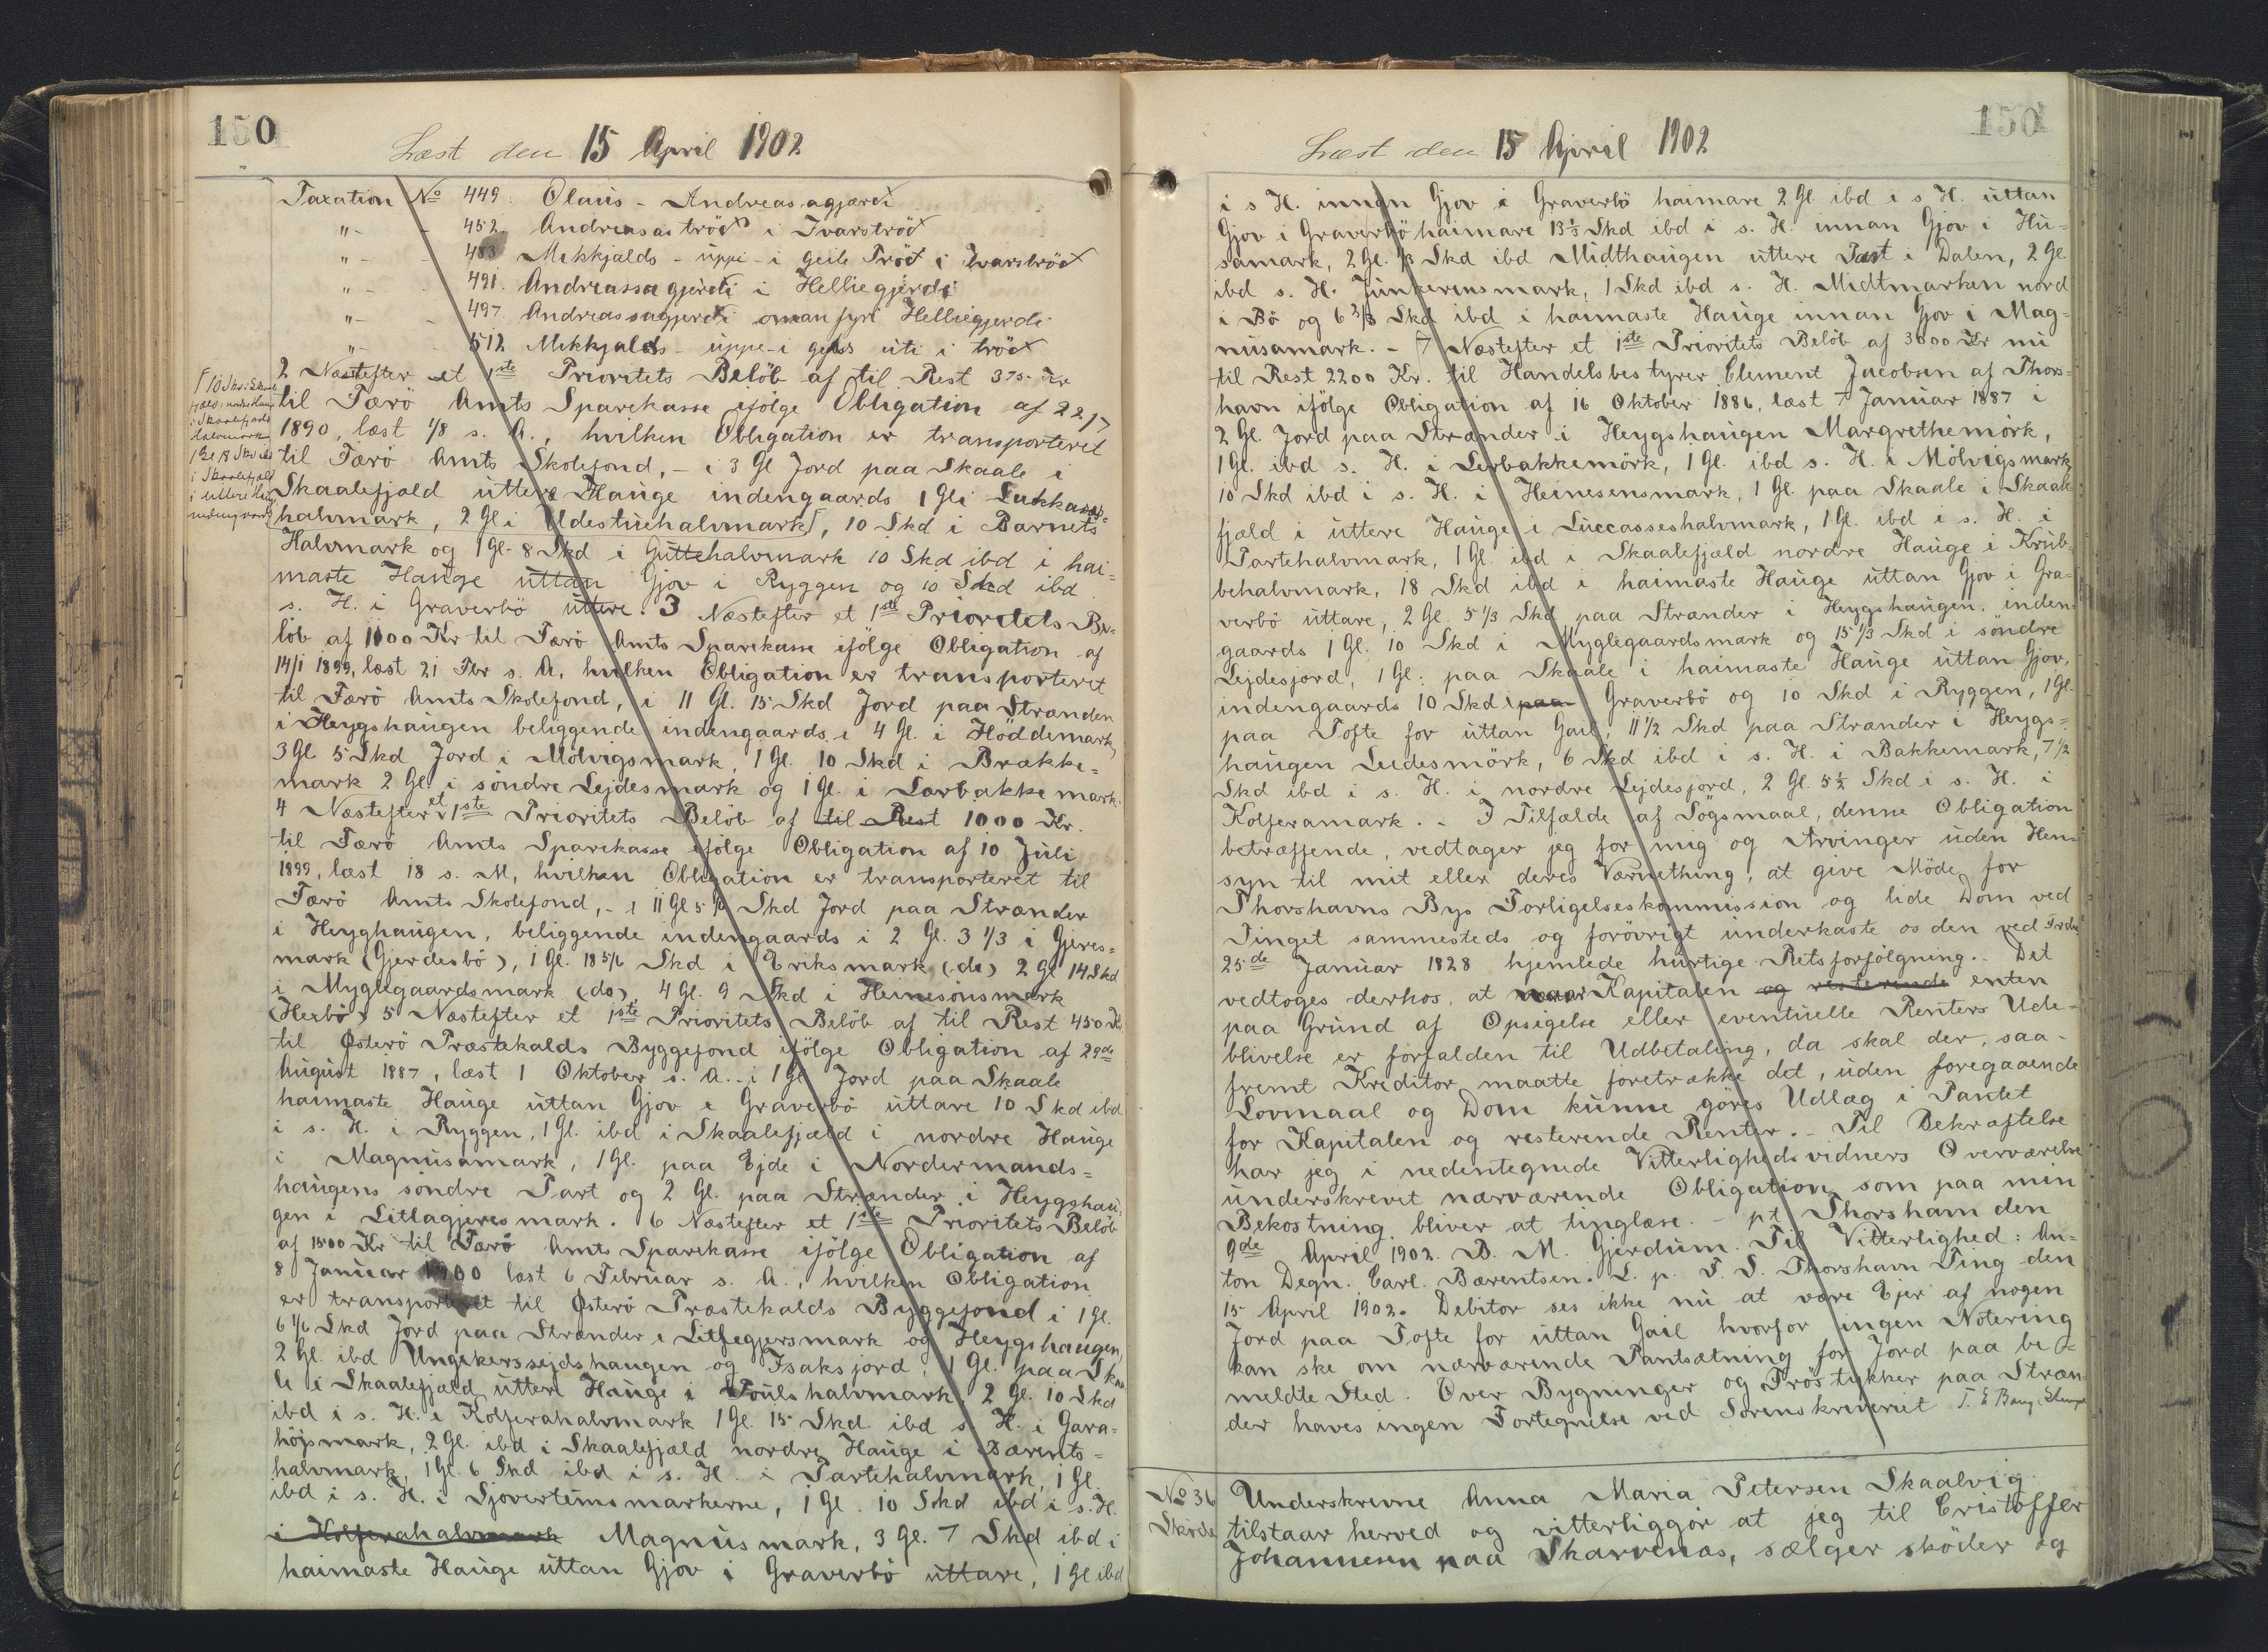 150
Læst den 15 April 1902
Taxation No 449. Olaus - Andreasagjærdi
"- - 452. Andreasas tröd i Ivarströd
"- - 483 Mikkjalds - uppi - i geile Tröd i Ivarströd
"- - 491. Andreassa gjerdi i Helliegjerdi
"- - 497. Andreassagjerdi oman fyri Helliegjerdi
"- - 512 Mikkjalds - uppe - i geils uti i tröd
2. Næstefter et 1ste Prioritets Belöb af til Rest 375 Kr
til Færö Amts Sparekasse ifölge Obligation af 22/7
1890, læst 1/8 s. A., hvilken Obligation er transporteret
til Færö Amts Skolefond, - i 3 Gl Jord paa Skaale i
Skaalefjæld uttere Hauge indengaards 1 Gl i Lukkases=
halvmark, 2 Gl i Udestuehalvmark, 10 Skd i Barnets
Halvmark og 1 Gl. 8 Skd i Guttehalvmark 10 Skd ibd i hai=
maste Hauge uttan Gjov i Ryggen og 10 Skd ibd
s. H. i Graverbö uttere. 3 Næstefter et 1ste Prioritets Be=
löb af 1100 Kr til Færö Amts Sparekasse ifölge Obligation af
14/1 1899, læst 21 Fbr s. A, hvilken Obligation er transporteret
til Færö Amts Skolefond, i 11 Gl. 15 Skd Jord paa Strænden
i Heygshaugen beliggende indengaards i 4 Gl. i Höddemark,
3 Gl 5 Skd Jord i Mölvigsmark, 1 Gl. 10 Skd i Brække=
mark 2 Gl i söndre Lejdesmark og 1 Gl. i Lorbakke mark.
4 Næstefter et 1ste Prioritets Belöb af til Rest 1000 Kr.
til Færö Amts Sparekasse ifölge Obligation af 10 Juli
1899, læst 18 s. M, hvilken Obligation er transporteret til
Færö Amts Skolefond, - i 11 Gl 5 1/2 Skd Jord paa Strænder
i Heyghaugen, beliggende indengaards i 2 Gl. 3 1/3 i Gjeres=
mark (Gjerdesbö), 1 Gl. 18 5/6 Skd i Eriksmark (do) 2 Gl 14 Skd
i Myglegaardsmark (do), 4 Gl. 9 Skd i Heinesönsmark
(Herbö) 5 Næstefter et 1ste Prioritets Belöb af til Rest 450 Kr
til Østerö Præstekalds Byggefond ifölge Obligation af 29de
August 1887, læst 1 Oktober s. A. - i 1 Gl Jord paa Skaale
haimaste Hauge uttan Gjov i Graverbö uttare 10 Skd ibd
i s. H. i Ryggen, 1 Gl. ibd i Skaalefjæld i nordre Hauge
i Magnusamark, 1 Gl. paa Ejde i Nordermands=
haugens söndre Part og 2 Gl. paa Strænder i Heygshau=
gen i Litlagjeresmark. 6 Næstefter et 1ste Prioritets Belöb
af 1500 Kr til Færö Amts Sparekasse ifölge Obligation af
8 Januar 1900 læst 6 Februar s. A., hvilken Obligation
er transporteret til Østerö Præstekalds Byggefond i 1 Gl.
6 1/6 Skd Jord paa Strænder i Litlegjersmark og Heygshaugen,
2 Gl. ibd Ungekerssejdshaugen og Isaksjord, 1 Gl. paa Skaa
le i Skaalefjæld uttere Hauge i Poulshalvmark, 2 Gl. 10 Skd
ibd i s. H. i Kolferahalvmark 1 Gl. 15 Skd. ibd s. H. i Gara=
höjsmark, 2 Gl. ibd i Skaalefjæld nordre Hauge i Bærents=
halvmark, 1 Gl. 6 Skd ibd i s. H. i Partehalvmark, 1 Gl.
ibd i s. H. i Sjovertimsmarkerne, 1 Gl. 10 Skd ibd i s. H.
i Kolferahalvmark Magnusmark, 3 Gl. 7 Skd ibd i
haimaste Hauge uttan Gjov i Graverbö uttare, 1 Gl ibd
150
Læst den 15 April 1902
i s H. innan Gjov i Graverbö haimare 2 Gl ibd i s H. uttan
Gjov i Graverbö haimare 13 1/2 Skd ibd i s. H. innan Gjov i Hu=
samark, 2 Gl. 1/3 Skd ibd Midthaugen uttere Part i Dalen, 2 Gl
ibd s. H. Junkerensmark, 1 Skd ibd s. H. Midtmarken nord
i Bö og 6 2/3 Skd ibd i haimaste Hauge innan Gjov i Mag=
nusamark. - 7 Næstefter et 1ste Prioritets Belöb af 3000 Kr nu
til Rest 2200 Kr. til Handelsbestyrer Clement Jacobsen af Thors=
havn ifölge Obligation af 16 Oktober 1886, læst 7 Januar 1887 i
2 Gl. Jord paa Strænder i Heygshaugen Margrethemörk,
1 Gl. ibd s. H. i Lerbakkemörk, 1 Gl. ibd s. H. i Mölvigsmark,
10 Skd ibd i s. H. i Heinesensmark, 1 Gl. paa Skaale i Skaale
fjæld i uttere Hauge i Luccasseshalvmark, 1 Gl. ibd i s. H. i
Partehalvmark, 1 Gl. ibd i Skaalefjæld nordre Hauge i Krub=
behalvmark, 18 Skd ibd i haimaste Hauge uttan Gjov i Gra=
verbö uttare, 2 Gl 5 1/3 Skd paa Strænder i Heygshaugen. inden
gaards 1 Gl. 10 Skd i Myglegaardsmark og 15 1/3 Skd i söndre
Lejdesjord, 1 Gl: paa Skaale i haimaste Hauge uttan Gjov,
indengaards 10 Skd i paa Graverbö og 10 Skd i Ryggen, 1 Gl.
paa Tofte for uttan Gail, 11 1/2 Skd paa Strænder i Heygs=
haugen Lurdesmörk, 6 Skd ibd i s. H. i Bakkemark, 7 1/2
Skd ibd i s. H. i nordre Lejdesjord, 2 Gl. 5 1/2 Skd i s. H. i
Kolferamark. - I Tilfælde af Sögsmaal, denne Obligation
betræffende, vedtager jeg for mig og Arvinger uden Hen=
syn til mit eller deres Værnething, at give Möde for
Thorshavns Bys Forligelseskommission og lide Dom ved
Tinget sammesteds og forövrigt underkaste os den ved Frdn
25de Januar 1828 hjemlede hurtige Retsforfölgning. - Det
vedtoges derhos, at naar Kapitalen og resterende enten
paa Grund af Opsigelse eller eventuelle Renters Ude=
blivelse er forfalden til Udbetaling, da skal der, saa=
fremt Kreditor maatte foretrække det, uden foregaaende
Lovmaal og Dom kunne göres Udlæg i Pantet
for Kapitalen og resterende Renter. - Til Bekræftelse
har jeg i nedentegnede Vitterlighedsvidners Overværelse
underskrevet nærværende Obligation som paa min
Bekostning bliver at tinglæse. - pt Thorshavn den
9de April 1902. D. M. Gjerdum. Til Vitterlighed: An=
ton Degn. Carl. Bærentsen. L. p. F. S. Thorshavn Ting den
15 April 1902. Debitor ses ikke nu at være Ejer af nogen
Jord paa Tofte for uttan Gail hvorfor ingen Notering
kan ske om nærværende Pantsætning for Jord paa be=
meldte Sted. Over Bygninger og Tröstykker paa Stræn=
der haves ingen Fortegnelse ved Sorenskriveriet
No 36 Underskrevne Anna Maria Petersen Skaalvig
Sköde tilstaar herved og vitterliggör at jeg til Cristoffer
Johannesen paa Skarvenæs, sælger sköder og